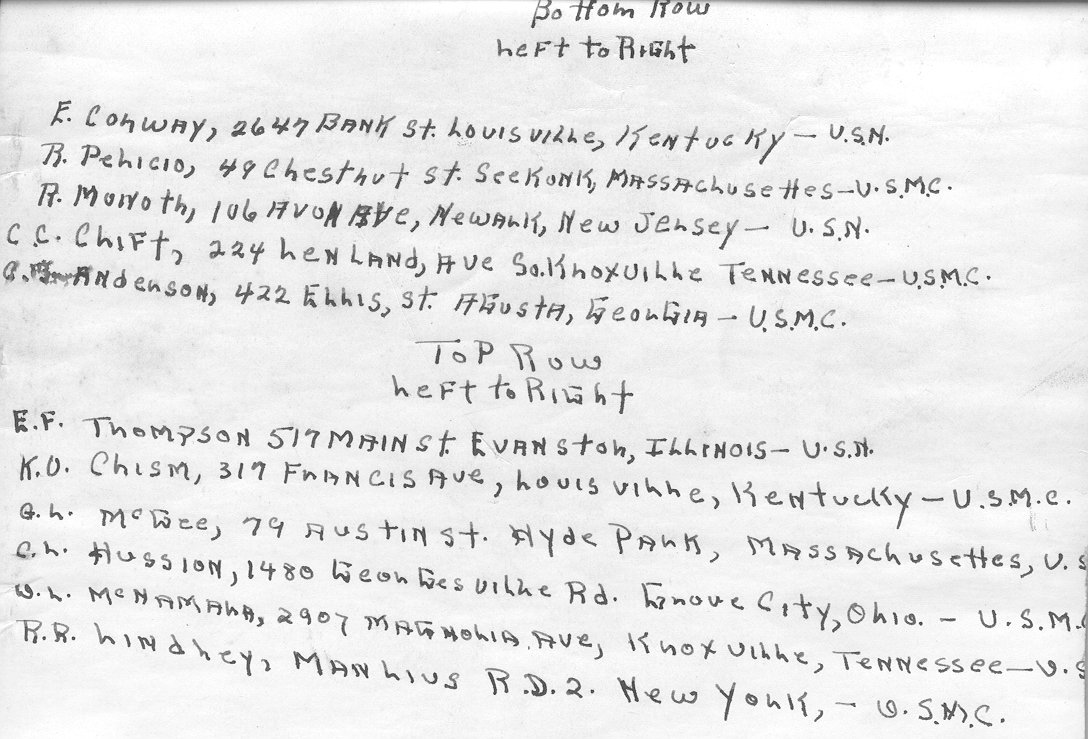 Bottom Row
Left to Right
E. Conway, 2647 Bank St. Louisville, Kentucky – U.S.N.
R. Pelicio, 49 Chestnut St. Seekonk, Massachusettes – U.S.M.C.
R. Monoth, 106 Avon Ave, Newark, New Jersey – U.S.N.
C.C. Clift, 224 Lenland, Ave So. Knoxville Tennessee – U.S.M.C.
Anderson, 422 Ellis, St. Agusta, Georgia – U.S.M.C.
Top Row
Left to Right
E.F. Thompson 517 Main St. Evanston, Illinois – U.S.N.
K.O. Chism, 317 Francis Ave, Louisville, Kentucky – U.S.M.C.
G.L. McGee, 79 Austin St. Hyde Park, Massachusettes, U.S
C.L. Hussion, 1480 Georgesville Rd. Grove City, Ohio. – U.S.M.C
W.L. McNamara, 2907 Magnolia Ave, Knoxville, Tennessee – U.S
R.R. Lindley, Manlius R.D.2. New York, – U.S.M.C.